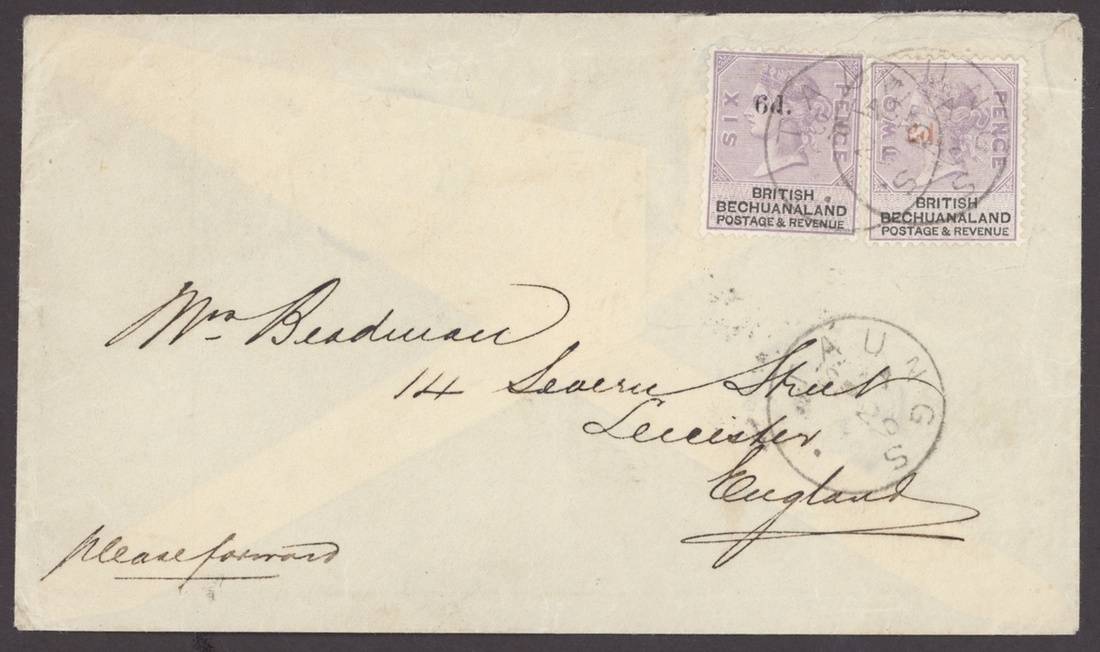 SIX PENCE
6d.
BRITISH
BECHUANALAND
POSTAGE & REVENUE
TWO PENCE
BRITISH
BECHUANALAND
POSTAGE & REVENUE
TAUNGS
Mrs Beadman
14 Severn Street
Leicester
England
please forward
TAUNGS
29